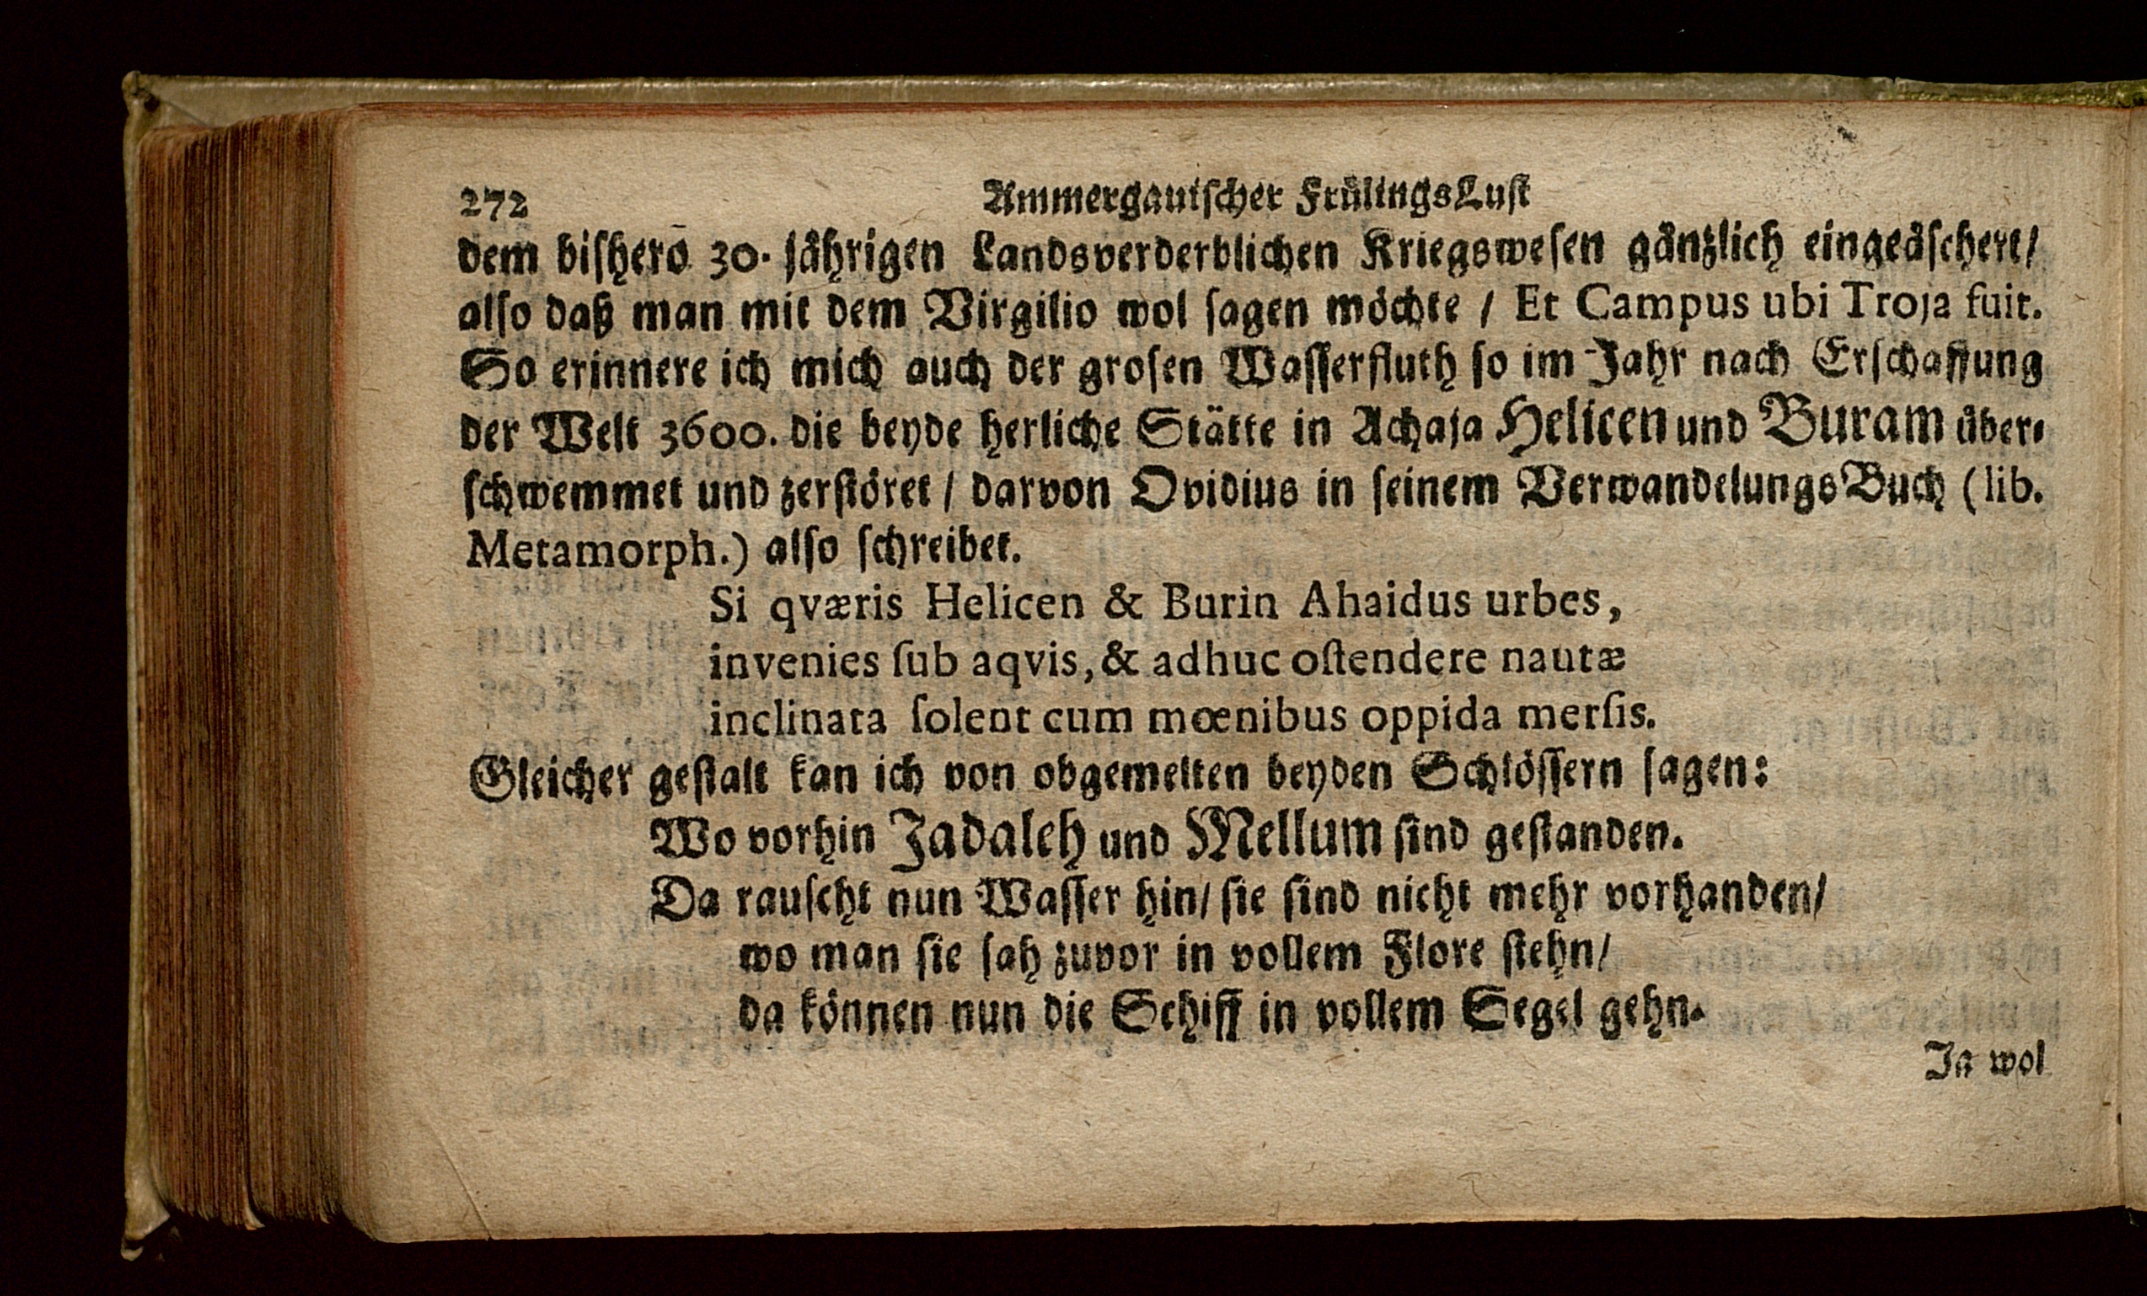 272 Ammergauischer FrülingsLust
dem bißherō 30. jährigen Landsverderblichen Kriegswesen gäntzlich eingeäschert/
also daß man mit dem Virgilio wol sagen möchte / Et Campus ubi Troja fuit.
So erinnere ich mich auch der grosen Wasserfluth so im Jahr nach Erschaffung
der Welt 3600. die beyde herliche Stätte in Achaja Helicen und Buram über-
schwemmet und zerstöret / darvon Ovidius in seinem VerwandelungsBuch (lib.
Metamorph.) also schreibet.
Si qværis Helicen & Burin Ahaidus urbes,
invenies ſub aqvis, & adhuc oſtendere nautæ
inclinata ſolent cum mœnibus oppida merſis.
Gleicher gestalt kan ich von obgemelten beyden Schlössern sagen:
Wo vorhin Jadaleh und Mellum sind gestanden.
Da rauscht nun Wasser hin/ sie sind nicht mehr vorhanden/
wo man sie sah zuvor in vollem Flore stehn/
da können nun die Schiff in vollem Segel gehn.
Ja wol